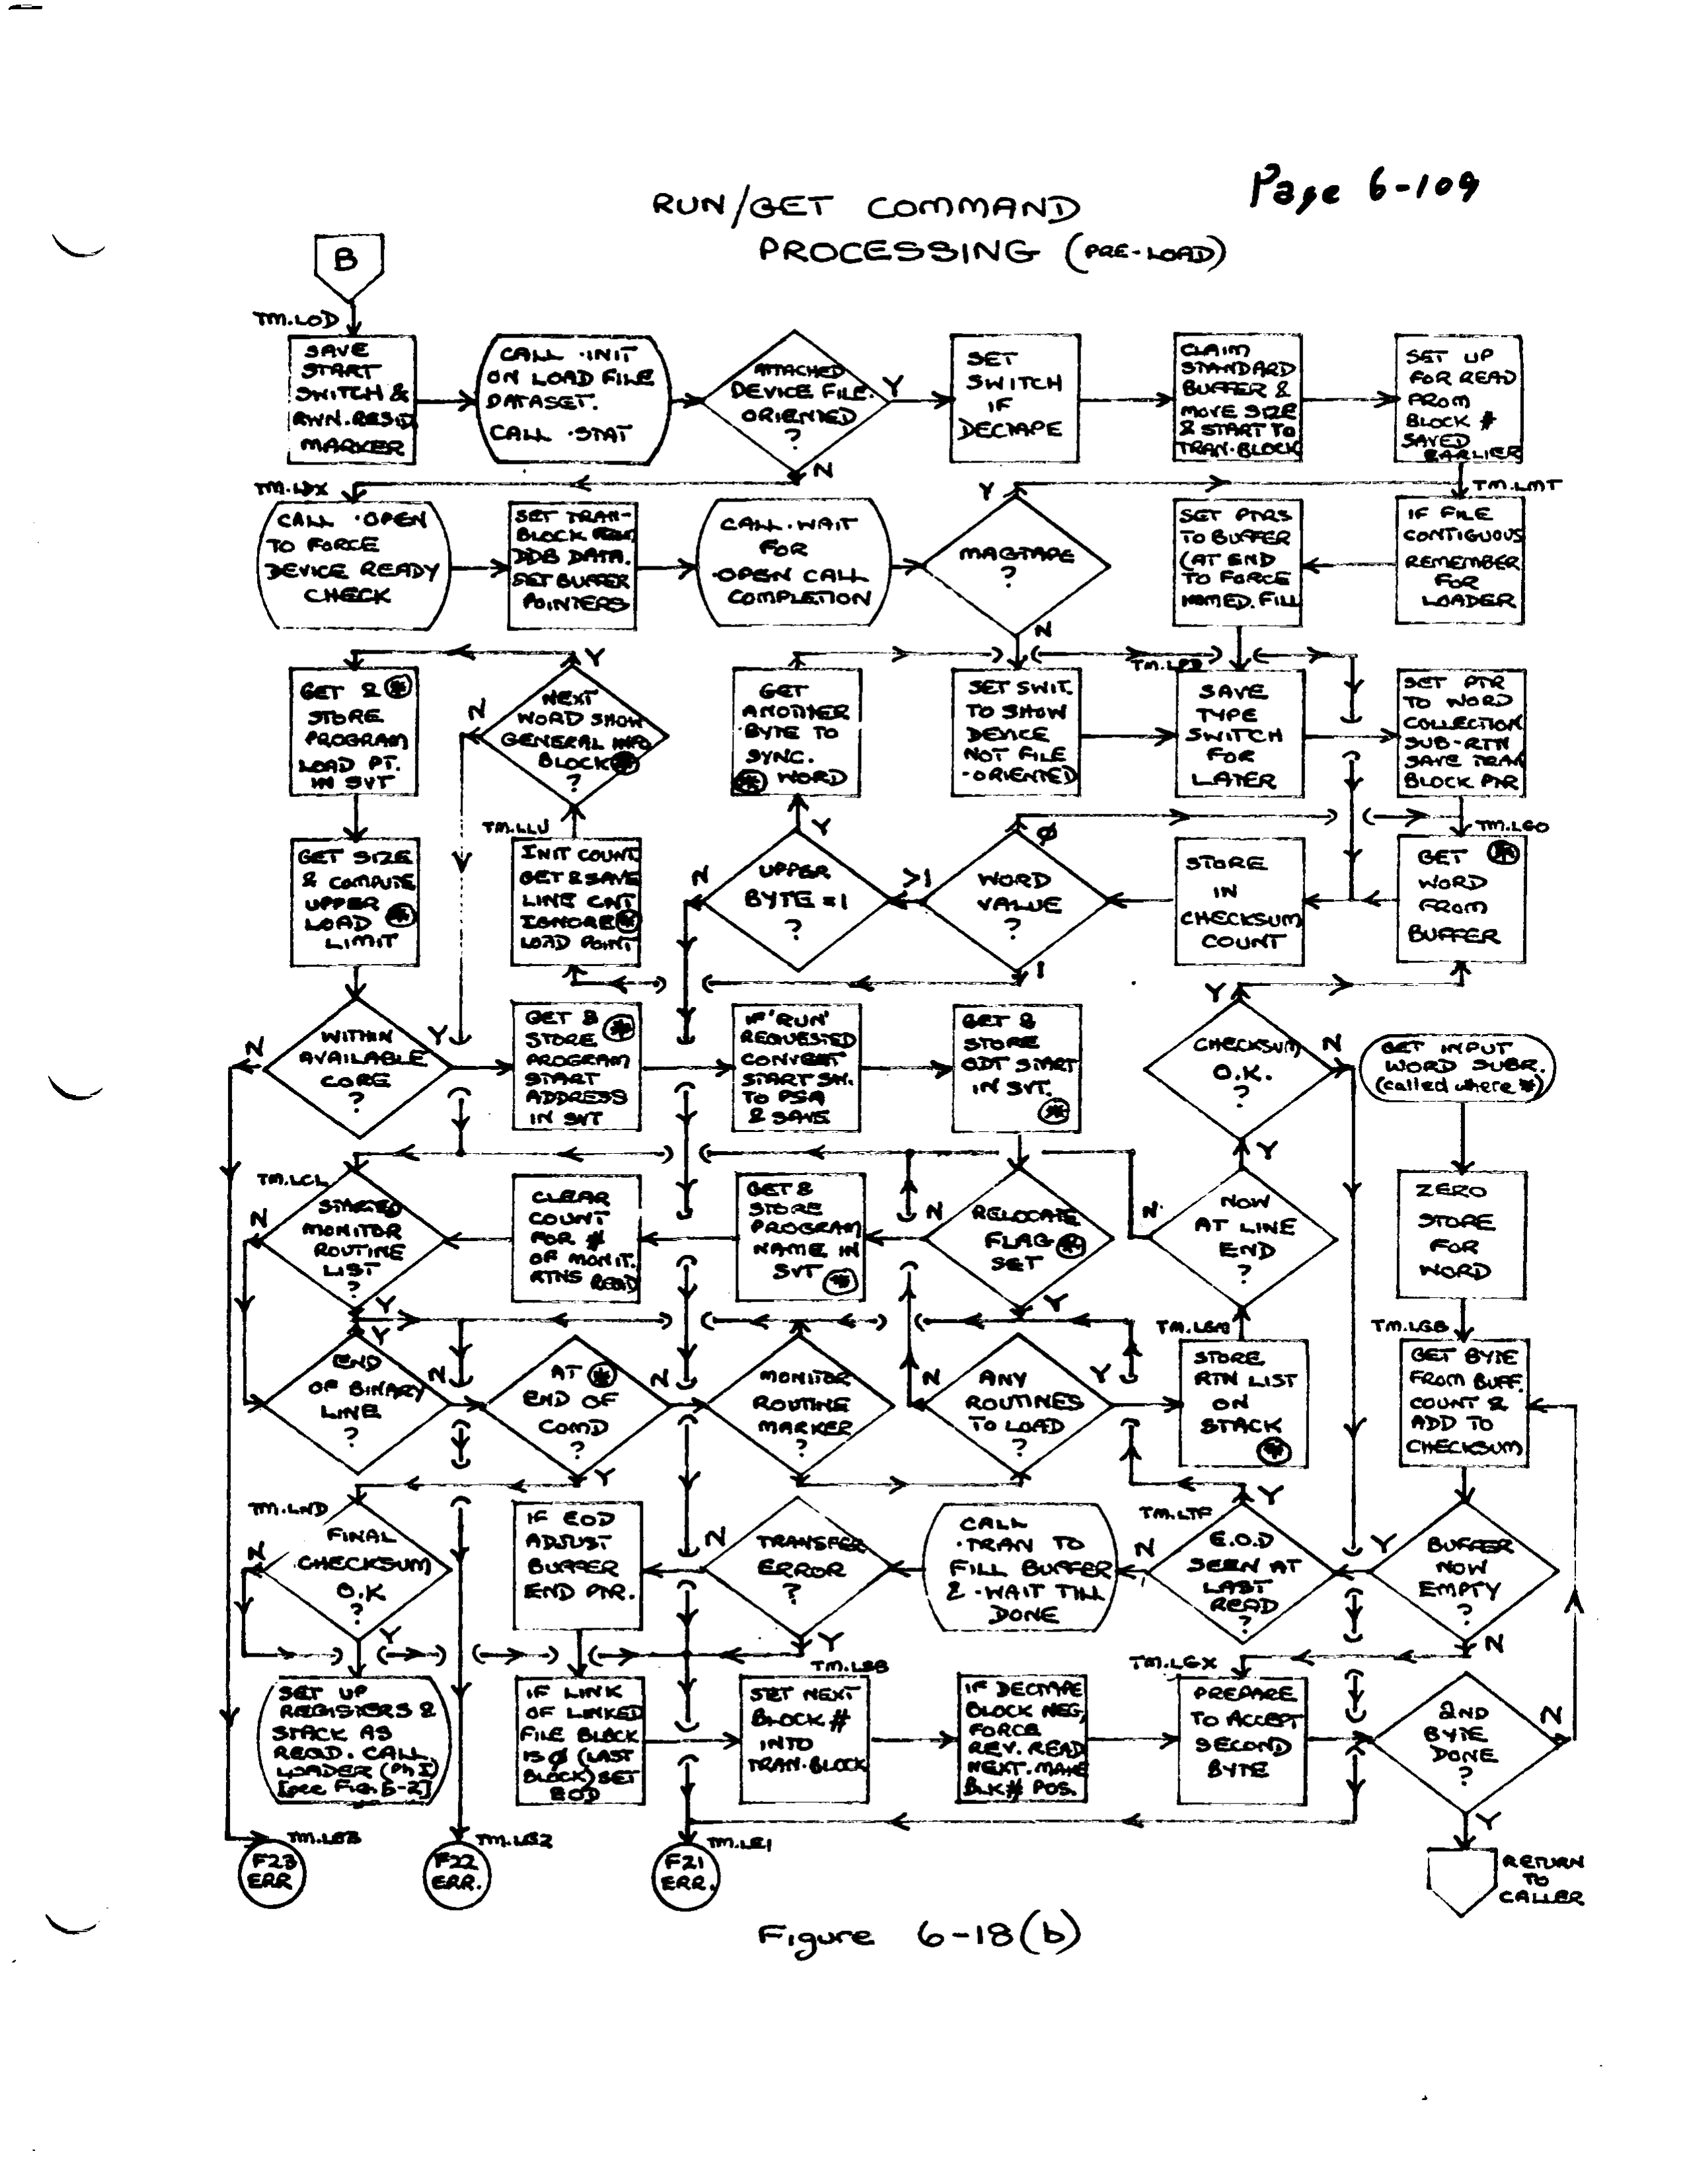 Page 6-109
RUN/GET COMMAND
PROCESSING (PRE-LOAD)
B
TM.LOD
SAVE
START
SWITCH &
RWN.RESID
MARKER
CALL .INIT
ON LOAD FILE
DATASET.
CALL .STAT
ATTACHED
DEVICE FILE.
ORIENTED
?
Y
N
SET
SWITCH
IF
DECTAPE
CLAIM
STANDARD
BUFFER &
MOVE SIZE
& START TO
TRAN.BLOCK
SET UP
FOR READ
FROM
BLOCK #
SAVED
EARLIER
TM.LDX
CALL .OPEN
TO FORCE
DEVICE READY
CHECK
SET TRAN-
BLOCK FROM
DDB DATA.
SET BUFFER
POINTERS
CALL .WAIT
FOR
.OPEN CALL
COMPLETION
Y
MAGTAPE
?
N
SET PTRS
TO BUFFER
(AT END
TO FORCE
IMMED. FILL
TM.LMT
IF FILE
CONTIGUOUS
REMEMBER
FOR
LOADER
GET & *
STORE
PROGRAM
LOAD PT.
IN SVT
Y
N
NEXT
WORD SHOW
GENERAL INFO
BLOCK *
?
GET
ANOTHER
BYTE TO
SYNC.
* WORD
SET SWIT.
TO SHOW
DEVICE
NOT FILE
-ORIENTED
SAVE
TYPE
SWITCH
FOR
LATER
SET PTR
TO WORD
COLLECTION
SUB-RTN
SAVE TRAN
BLOCK PTR
GET SIZE
& COMPUTE
UPPER
LOAD *
LIMIT
TM.LLU
INIT COUNT
GET & SAVE
LINE CNT
IGNORE *
LOAD POINT
Y
N
UPPER
BYTE = 1
?
Ø
>1
WORD
VALUE
?
1
STORE
IN
CHECKSUM
COUNT
TM.LGO
GET *
WORD
FROM
BUFFER
N
Y
WITHIN
AVAILABLE
CORE
?
GET & *
STORE
PROGRAM
START
ADDRESS
IN SVT
IF 'RUN'
REQUESTED
CONVERT
START SW.
TO PSA
& SAVE
GET &
STORE
ODT START
IN SVT.
*
Y
CHECKSUM
O.K.
?
N
GET INPUT
WORD SUBR.
(called where *)
TM.LCL
N
STARTED
MONITOR
ROUTINE
LIST
?
Y
CLEAR
COUNT
FOR #
OF MONIT.
RTNS READ
GET &
STORE
PROGRAM
NAME IN
SVT *
N
RELOCATE
FLAG *
SET
Y
N
NOW
AT LINE
END
?
Y
ZERO
STORE
FOR
WORD
Y
END
OF BINARY
LINE
?
N
AT *
END OF
COMD
?
N
Y
MONITOR
ROUTINE
MARKER
?
N
ANY
ROUTINES
TO LOAD
?
Y
STORE
RTN LIST
ON
STACK
*
TM.LGB
GET BYTE
FROM BUFF.
COUNT &
ADD TO
CHECKSUM
TM.LND
N
FINAL
CHECKSUM
O.K
?
Y
IF EOD
ADJUST
BUFFER
END PTR.
N
TRANSFER
ERROR
?
Y
CALL
.TRAN TO
FILL BUFFER
& .WAIT TILL
DONE
TM.LTF
Y
N
E.O.D
SEEN AT
LAST
READ
?
Y
BUFFER
NOW
EMPTY
?
N
SET UP
REGISTERS &
STACK AS
REQD. CALL
LOADER (Ph I)
[see Fig. 5-2]
IF LINK
OF LINKED
FILE BLOCK
IS Ø (LAST
BLOCK) SET
EOD
TM.LSB
SET NEXT
BLOCK #
INTO
TRAN.BLOCK
IF DECTAPE
BLOCK NEG,
FORCE
REV. READ
NEXT. MAKE
BLK # POS.
TM.LGX
PREPARE
TO ACCEPT
SECOND
BYTE
2ND
BYTE
DONE
?
N
Y
TM.LE3
F23
ERR
TM.LE2
F22
ERR.
TM.LE1
F21
ERR.
RETURN
TO
CALLER
Figure 6-18(b)